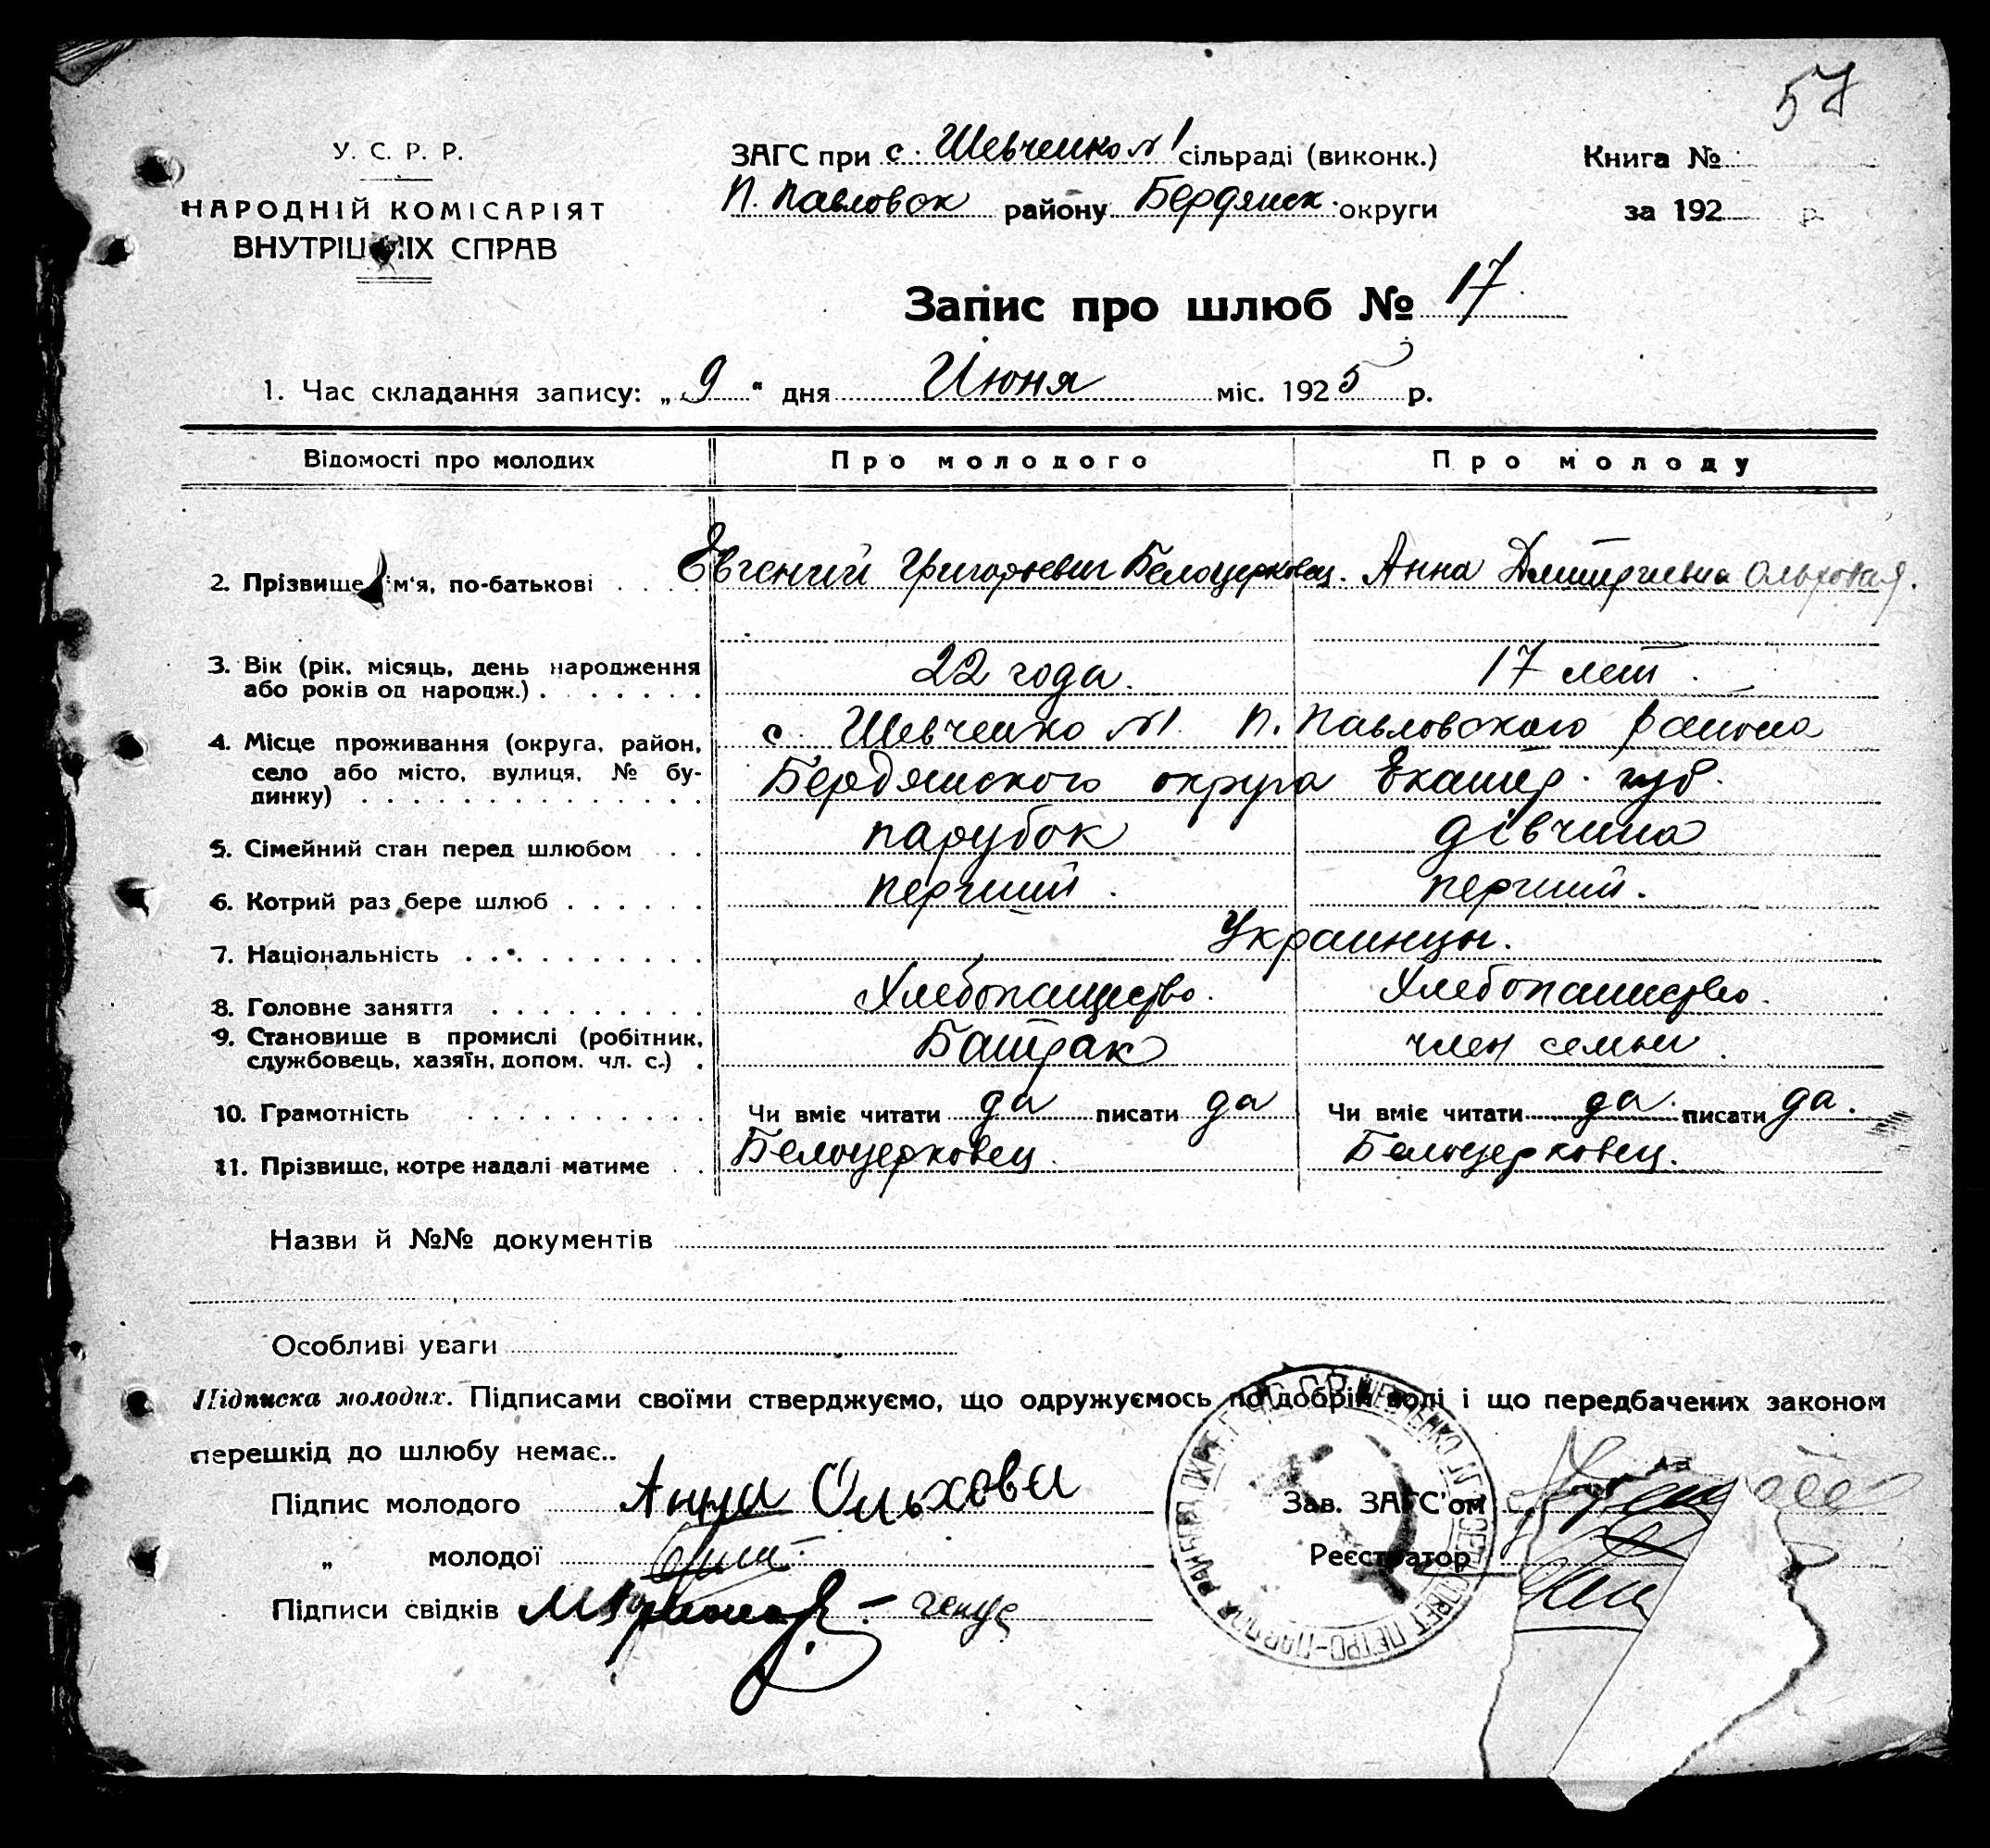 57
У. С. Р. Р.
НАРОДНІЙ КОМІСАРІЯТ
ВНУТРІШНІХ СПРАВ
ЗАГС при с. Шевченко №1 сільраді (виконк.)
П. Павловск району Бердянск. округи
Книга №
за 192 р.
Запис про шлюб № 17.
1. Час складання запису: „ 9 " дня Июня міс. 1925 р.
Відомості про молодих Про молодого Про молоду
2. Прізвище, ім'я, по-батькові . . . . Евгений Григорьевич Белоцерковец. Анна Дмитриевна Ольховая.
3. Вік (рік, місяць, день народження 22 года. 17 лет.
або років од народж.) . . . . . . .
4. Місце проживання (округа, район, с. Шевченко №1. П. Павловского района
село або місто, вулиця, № бу- Бердянского округа Екатер. губ.
динку) . . . . . . . . . . . . . .
5. Сімейний стан перед шлюбом . . парубок дівчина
6. Котрий раз бере шлюб . . . . . . перший. перший.
7. Національність . . . . . . . . . . Украинцы.
8. Головне заняття . . . . . . . . . Хлебопащество. Хлебопашество.
9. Становище в промислі (робітник, Батрак член семьи.
службовець, хазяїн, допом. чл. с.) .
10. Грамотність . . . . . . . . . Чи вміє читати да писати да Чи вміє читати да. писати да.
11. Прізвище, котре надалі матиме . . Белоцерковец. Белоцерковец.
Назви й №№ документів
Особливі уваги
Підписка молодих. Підписами своїми стверджуємо, що одружуємось по добрій волі і що передбачених законом
перешкід до шлюбу немає..
Підпис молодого Анна Ольхова Зав. ЗАГС'ом
„ молодої Реєстратор
Підписи свідків